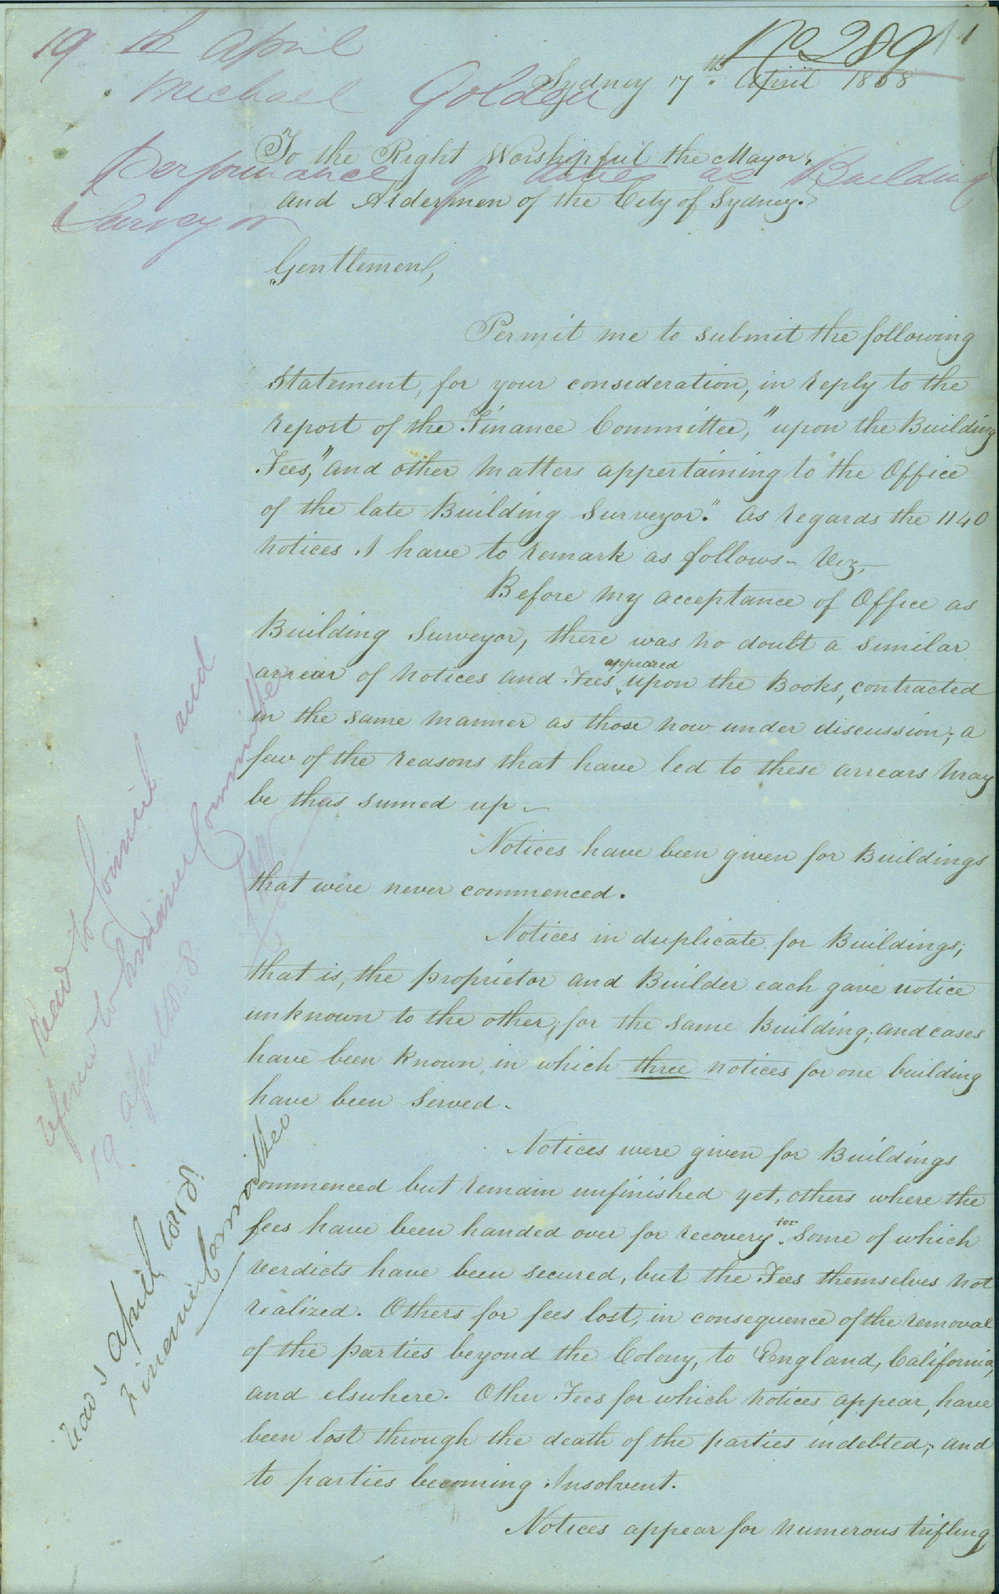 No 289
11
19 th April
Michael Golden
Performance of duties as Building
Surveyor
Sydney 17th April 1858
To the Right Worshipful the Mayor,
and Aldermen of the City of Sydney.
Gentlemen,
Permit me to submit the following
Statement, for your consideration, in reply to the
report of the Finance Committee, "upon the Building
Fees," and other matters appertaining to "the Office
of the late Building Surveyor." As regards the 1140
notices I have to remark as follows - Viz,-
Before my acceptance of Office as
Building Surveyor, there was no doubt a similar
arrear of notices and Fees appeared upon the Books, contracted
in the same manner as those now under discussion; a
few of the reasons that have led to these arrears may
be thus sumed up -
Notices have been given for Buildings
that were never commenced.
Notices in duplicate for Buildings;
that is, the proprietor and Builder each gave notice
unknown to the other, for the same Building; and cases
have been known, in which three notices for one building
have been served -
Notices were given for Buildings
commenced but remain unfinished yet, others where the
fees have been handed over for recovery for some of which
verdicts have been secured, but the Fees themselves not
realized. Others for fees lost, in consequence of the removal
of the parties beyond the Colony, to England, California,
and elswhere. Other Fees for which notices appear, have
been lost through the death of the parties indebted; and
to parties becoming Insolvent.
Notices appear for numerous trifling
Read to Council and
referred to Finance Committee
19 April 1858
April 1858
Finance Committee